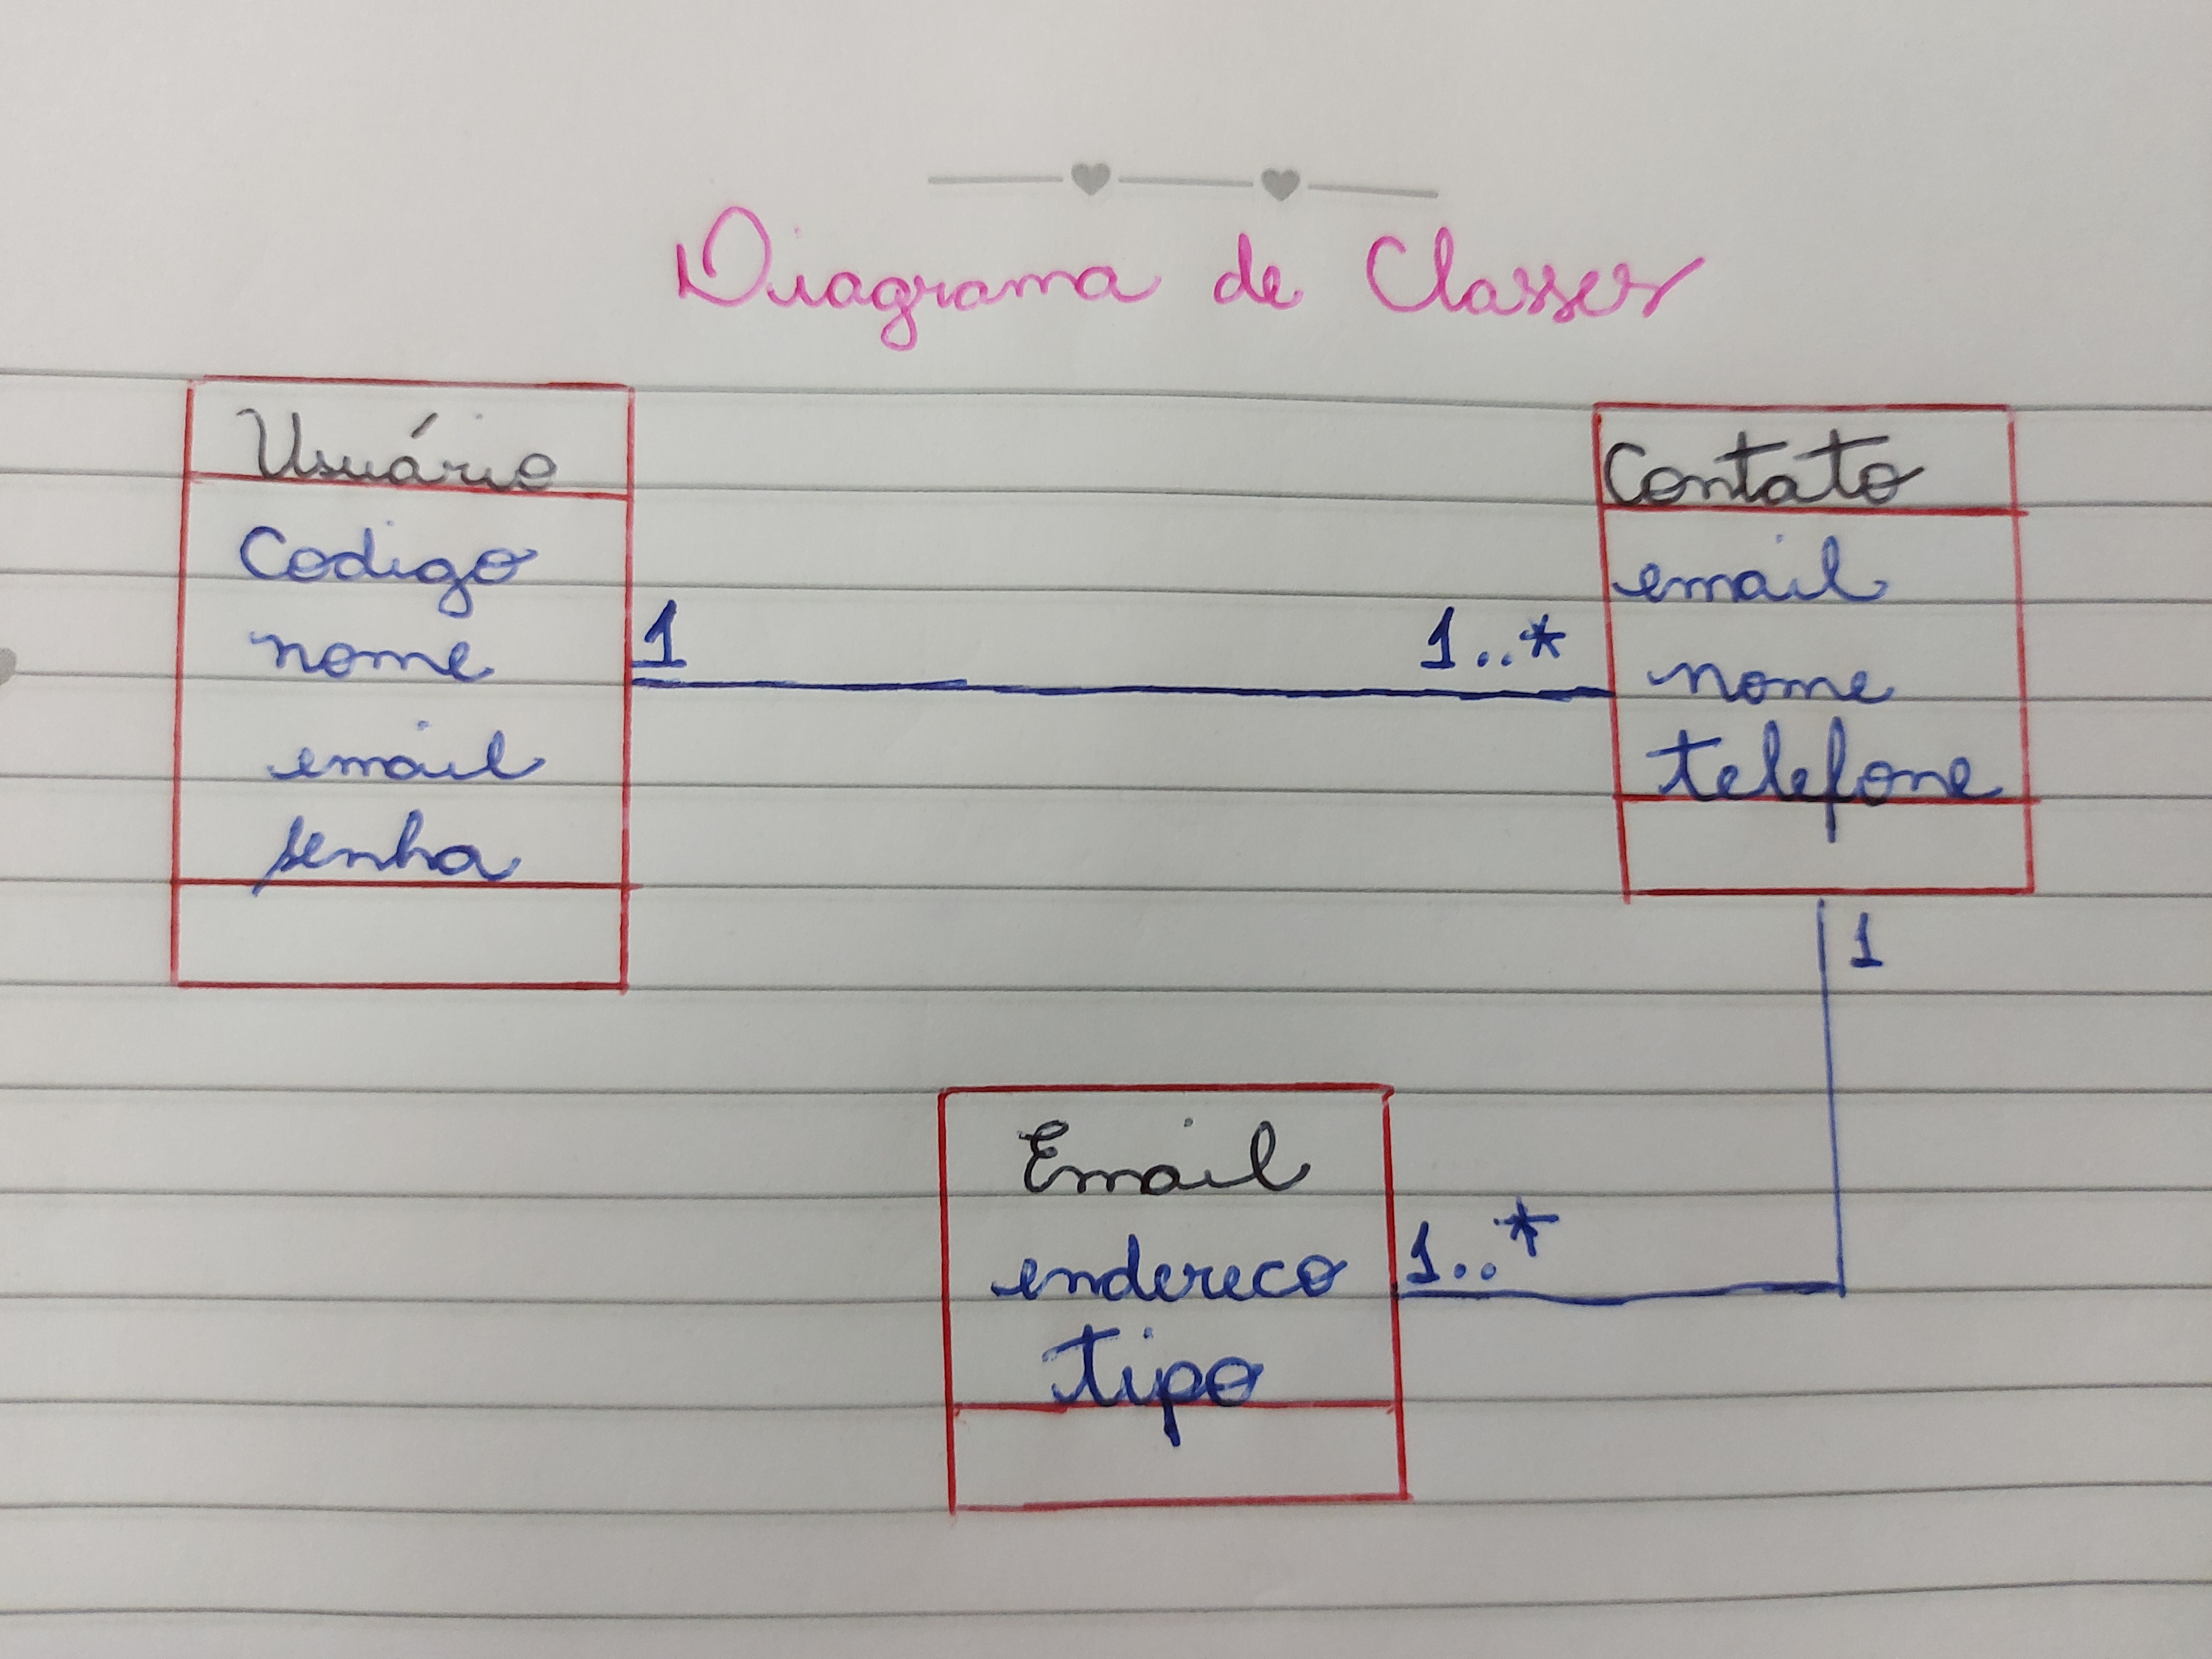 Diagrama de Classes
Usuário
Codigo
nome
email
senha
1
1..*
Contato
email
nome
telefone
1
Email
endereco
tipo
1..*